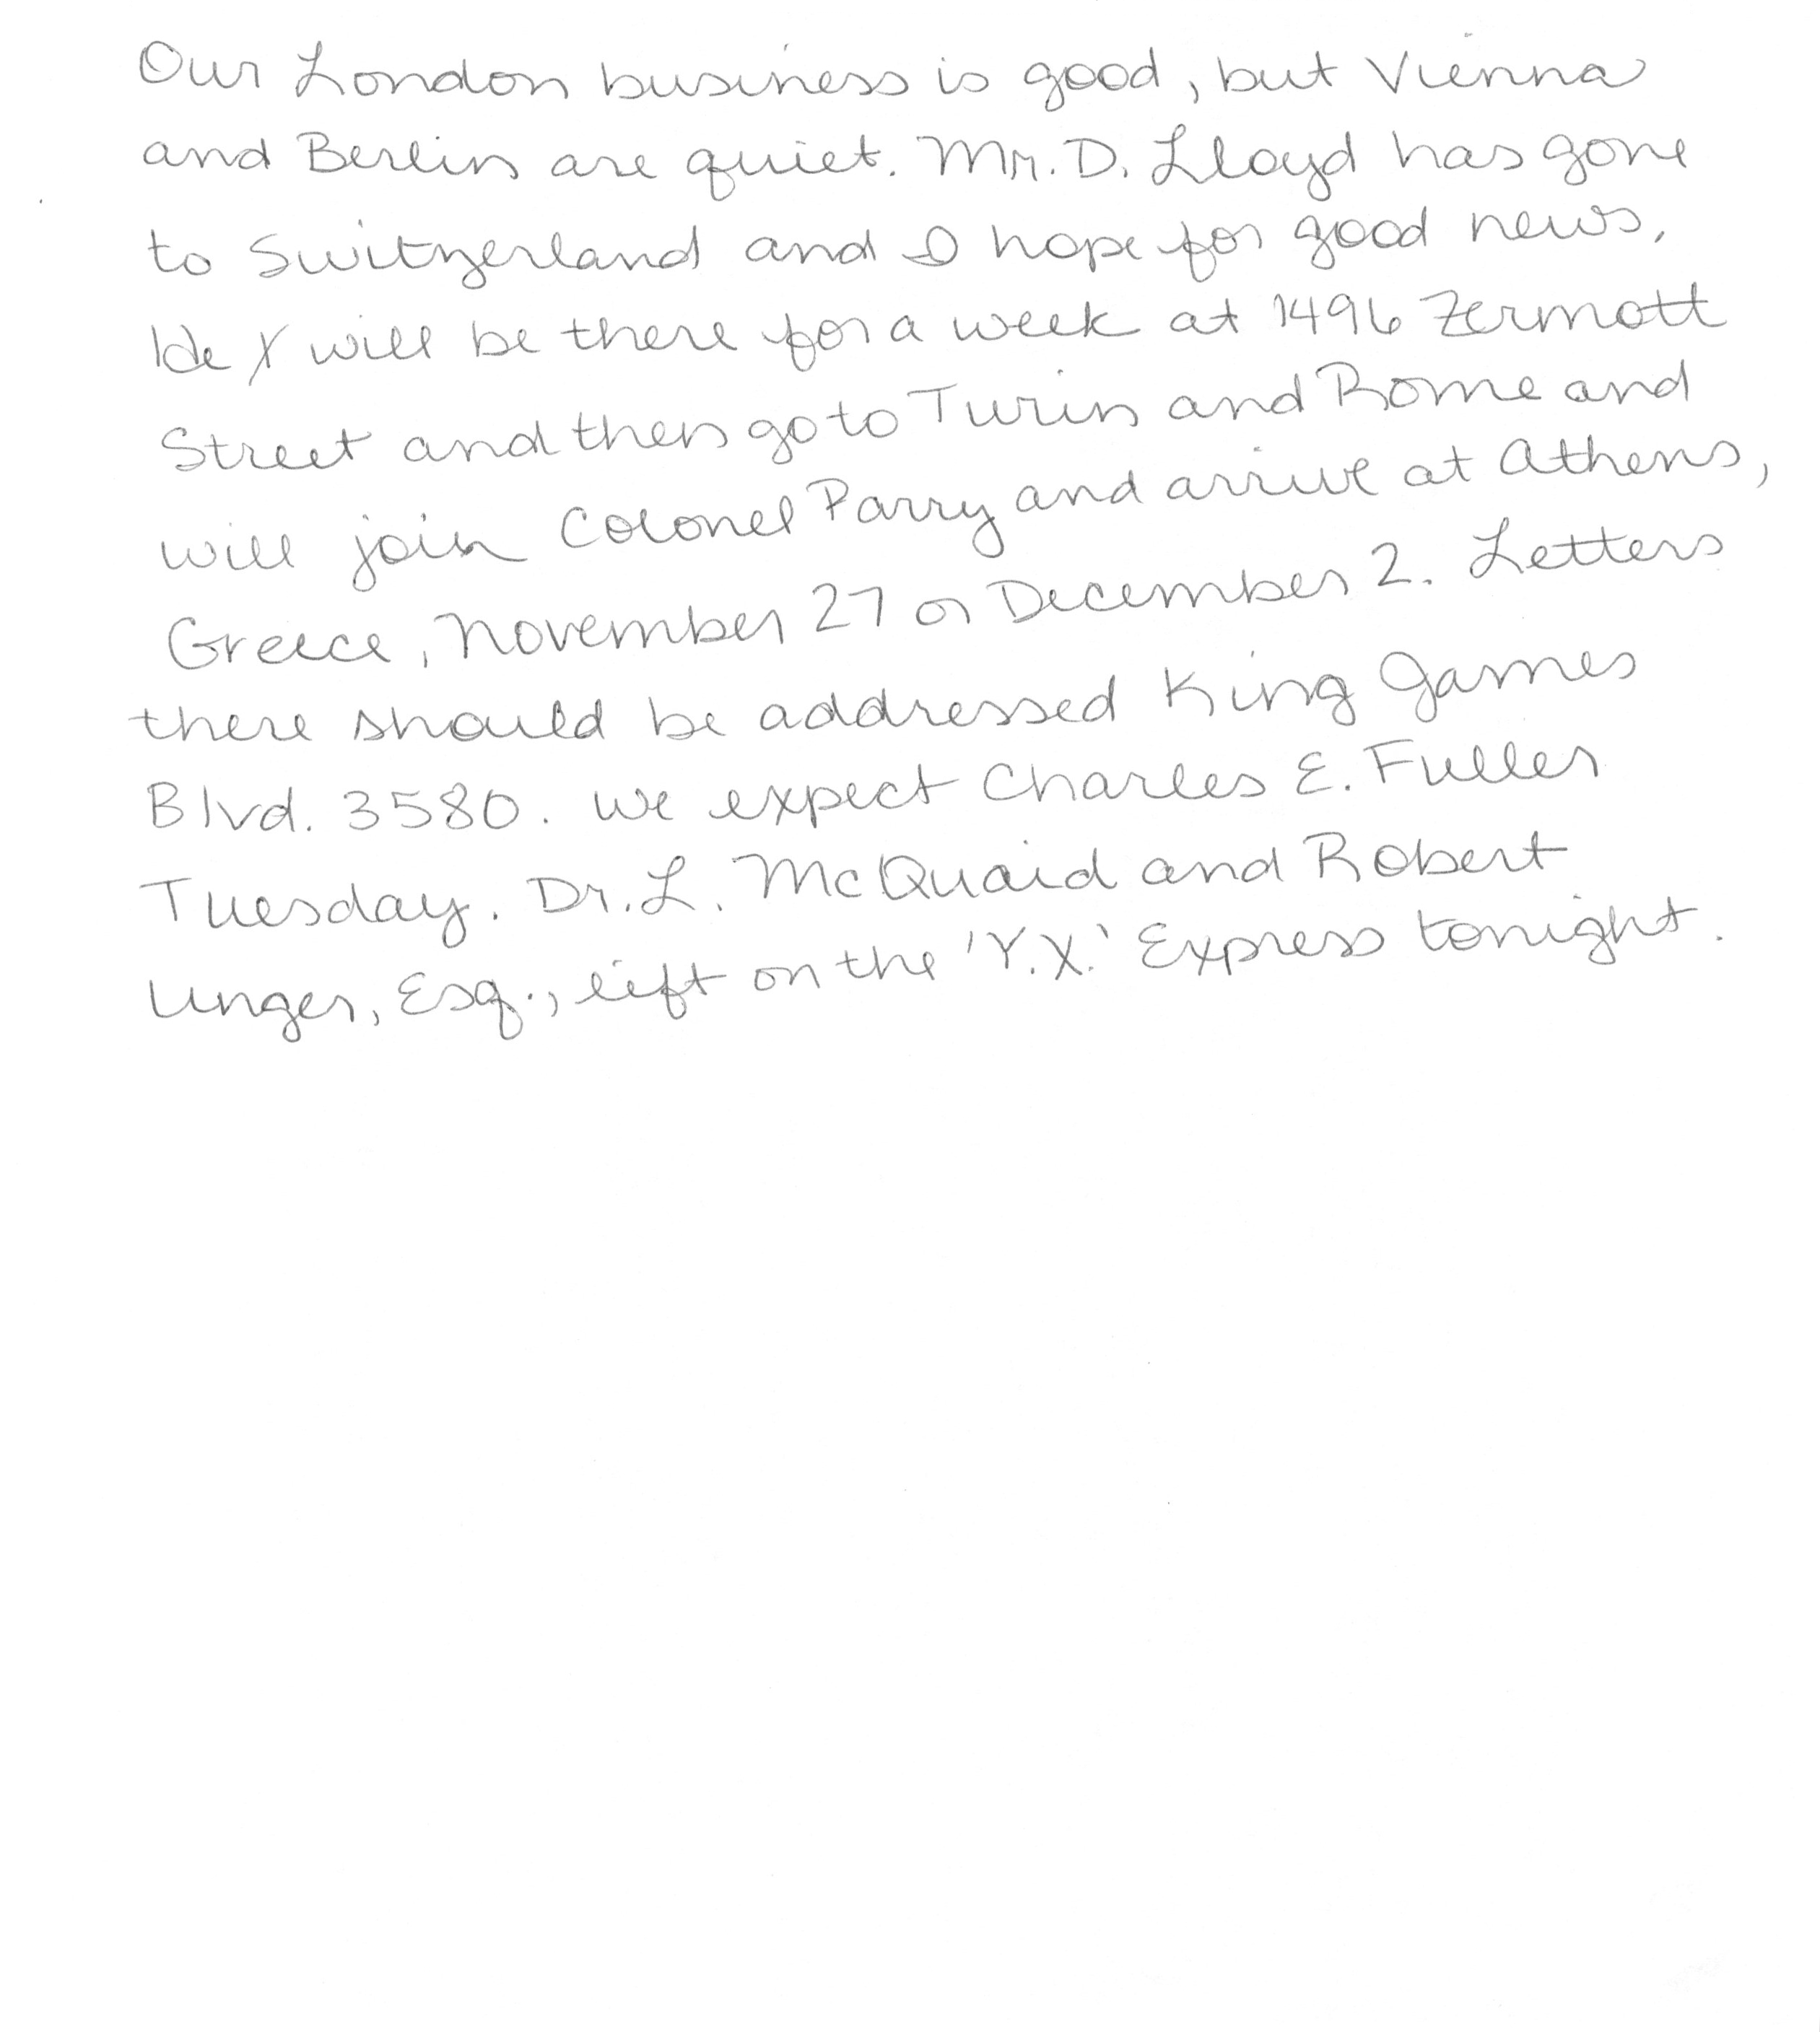 Our London business is good, but Vienna
and Berlin are quiet. Mr. D. Lloyd has gone
to Switzerland and I hope for good news.
He will be there for a week at 1496 Zermott
Street and then go to Turin and Rome and
will join Colonel Parry and arrive at Athens,
Greece, November 27 or December 2. Letters
there should be addressed King James
Blvd. 3580. We expect Charles E. Fuller
Tuesday. Dr. L. McQuaid and Robert
Unger, Esq., left on the 'Y.X.' Express tonight.